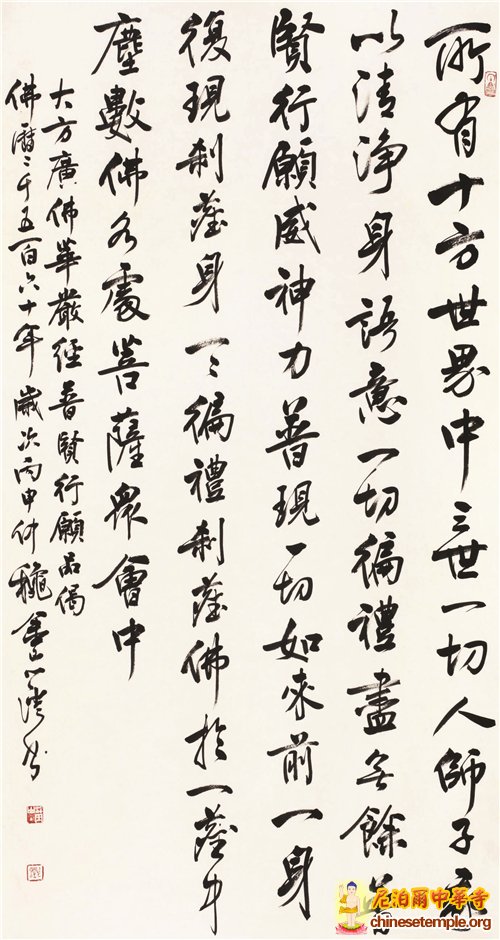 所有十方世界中三世一切人師子我
以清淨身語意一切徧禮盡無餘普
賢行願威神力普現一切如來前一身
復現刹塵身一〻徧禮刹塵佛於一塵中
塵數佛各處菩薩眾會中
大方廣佛華嚴經普賢行願品偈
佛曆二千五百六十年歲次丙申仲穐
尼泊爾中華寺
chinesetemple.org